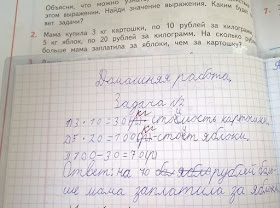 Объясни, что можно узнать
этом выражении. Найди значение выражения. Каким будет
вет задачи?
2. Мама купила 3 кг картошки, по 10 рублей за килограмм
5 кг яблок, по 20 рублей за килограмм. На сколько рублей
больше мама заплатила за яблоки, чем за картошку?
Домашняя работа.
Задача №2
1)3·10=30 кг стоимость картошки.
2)5·20=100 кг стоят яблоки.
3)100-30=70(р)
Ответ: на 70 рублей боль-
ше мама заплатила за яблоки